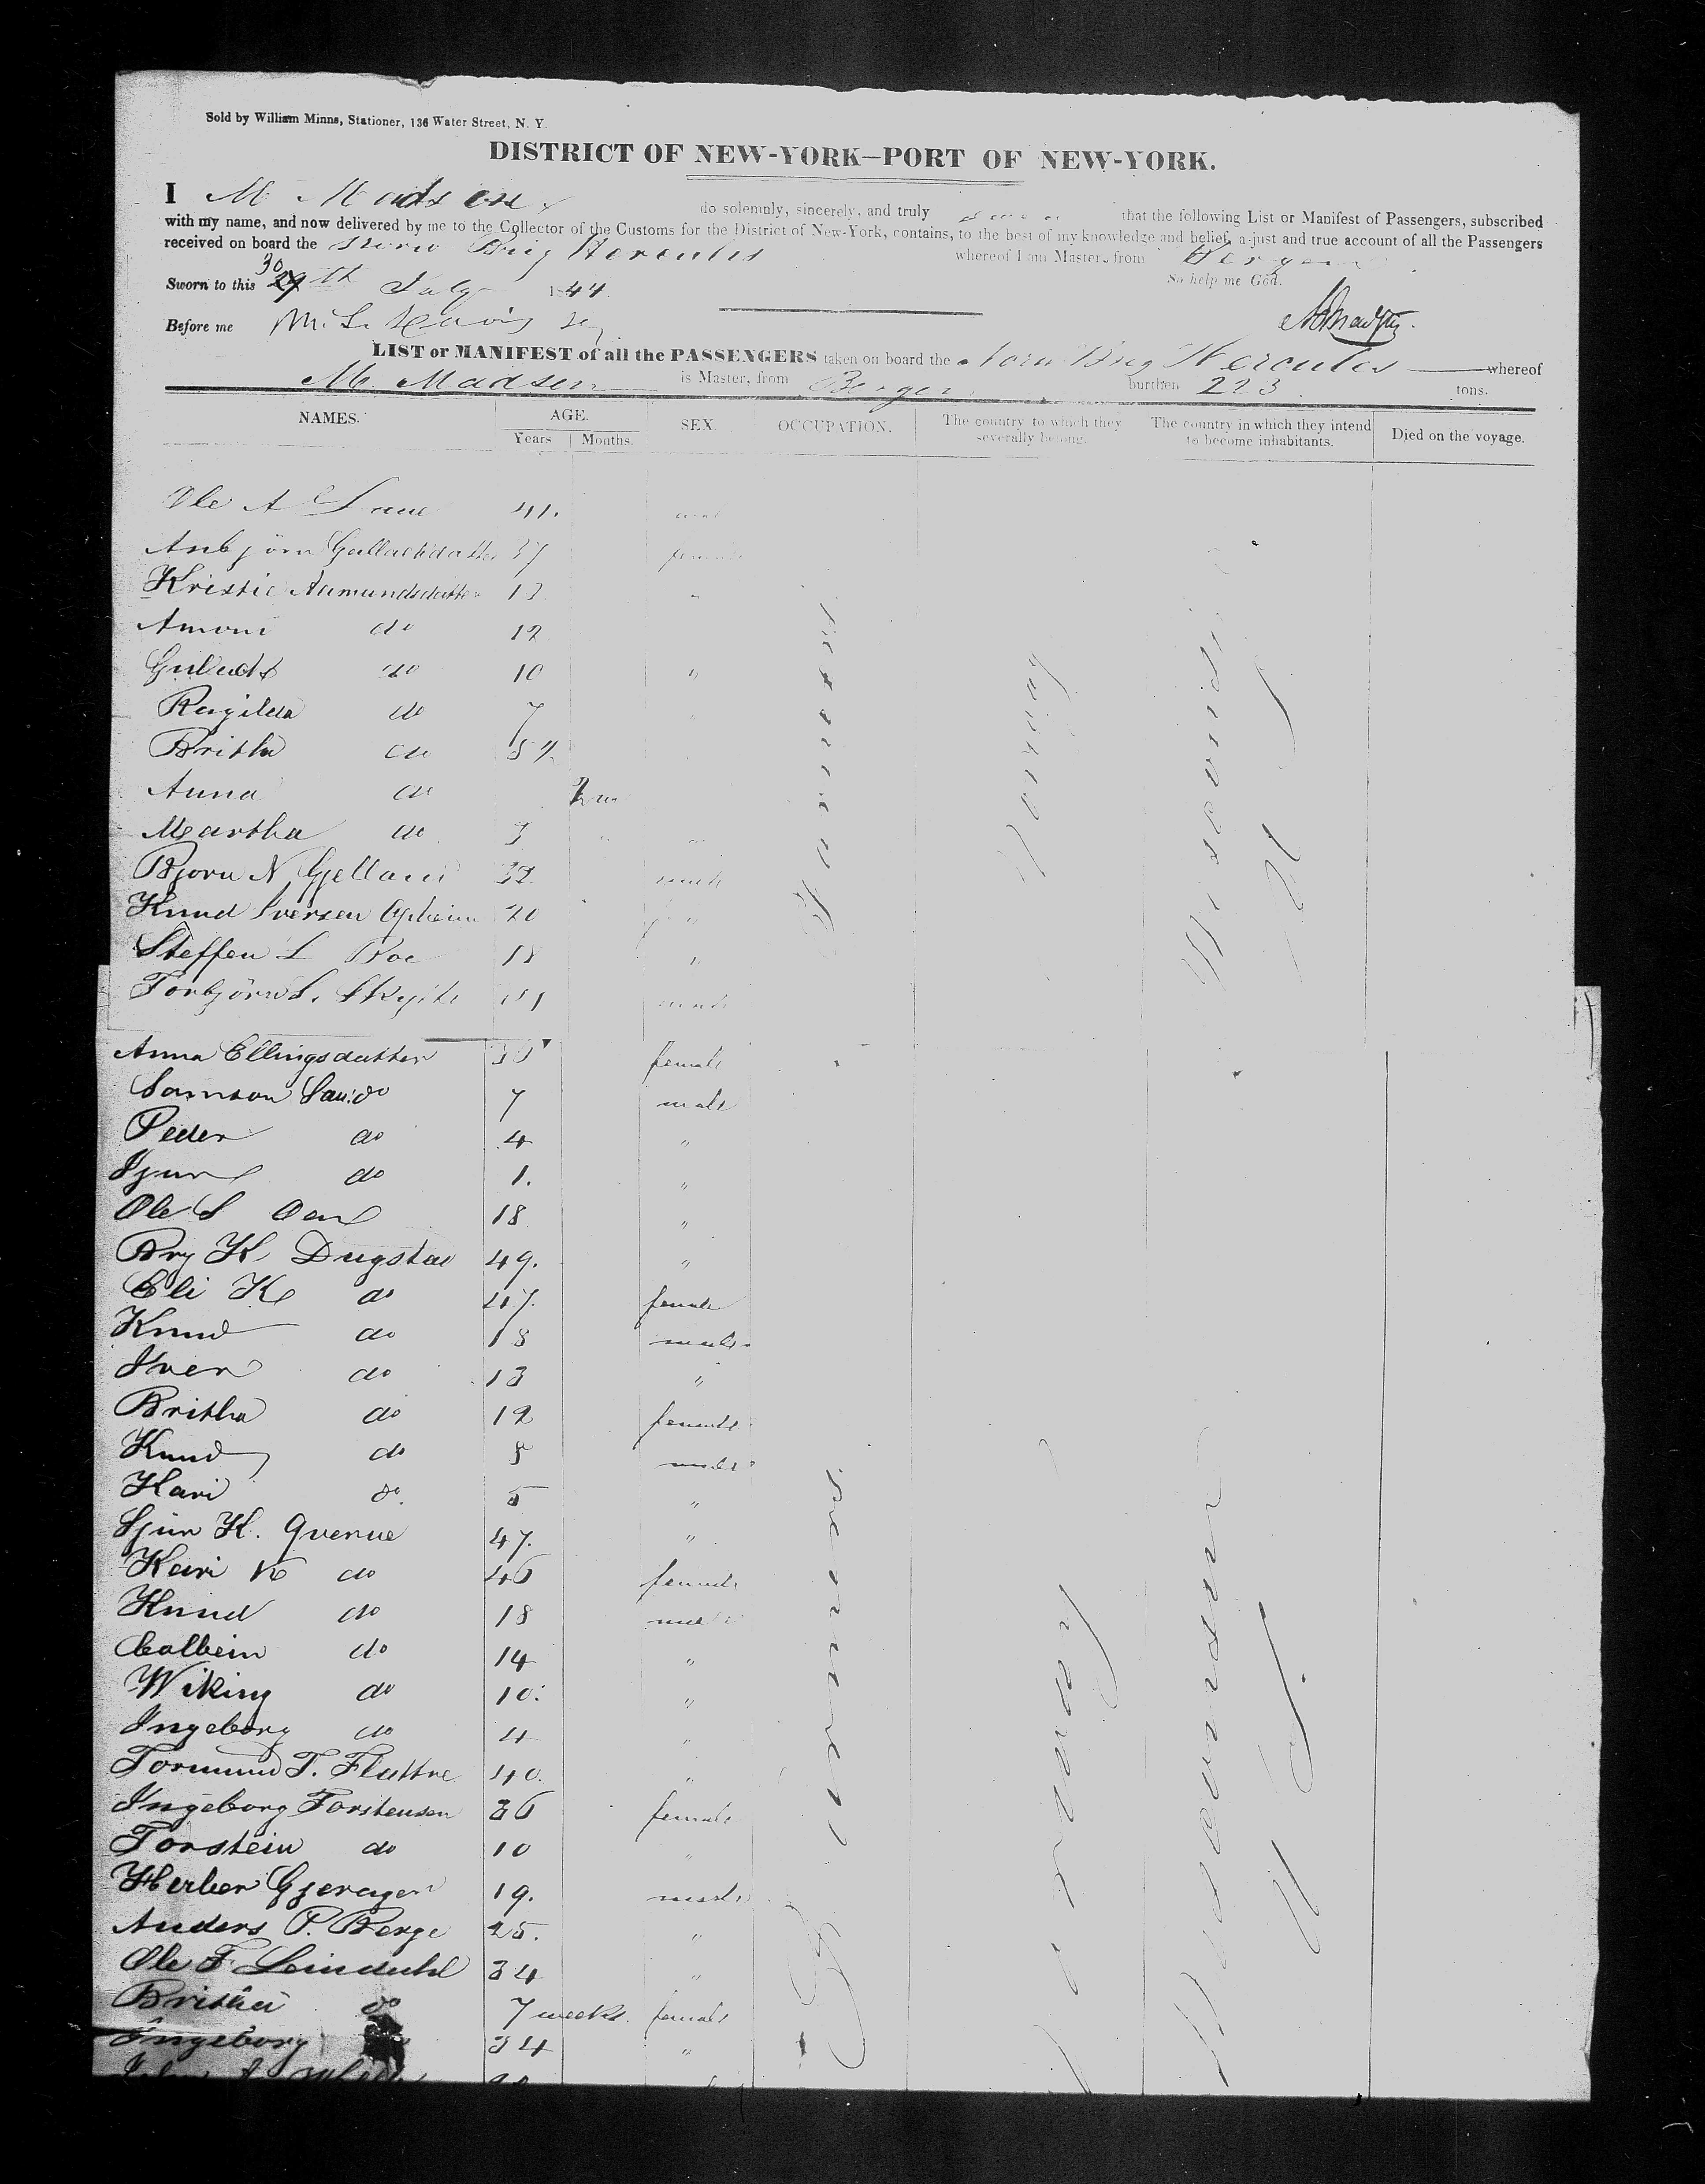 Sold by William Minns, Stationer, 136 Water Street, N. Y.
DISTRICT OF NEW-YORK—PORT OF NEW-YORK.
I M Madsen do solemnly, sincerely, and truly that the following List or Manifest of Passengers, subscribed
with my name, and now delivered by me to the Collector of the Customs for the District of New-York, contains, to the best of my knowledge and belief, a just and true account of all the Passengers
received on board the Norw Brig Hercules whereof I am Master, from Bergen
Sworn to this 30th July 1844. So help me God.
Before me
LIST or MANIFEST of all the PASSENGERS taken on board the Norw Brig Hercules whereof
M. Madsen is Master, from Bergen burthen 223 tons.
NAMES. AGE. SEX. OCCUPATION. The country to which they severally belong. The country in which they intend to become inhabitants. Died on the voyage.
Years Months.
Ole A 41.
Anbjörn 37 female
Kristie Aamundsdatter
Amoni do 12
do 10 "
Ragilda do 7
Britha do
Anna do
Martha do 3 "
Bjorn N. Gjelland 32 male
Knud Iversen Opheim 20 "
Steffen L Roe 18 "
Torbjörn S. male
Farmers
Norway
Wisconsin
Anna Ellingsdatter female
Samson Sau: do 7 male
Peder do 4 "
Sjur do 1. "
Ole S 18 "
Bry K Dugstad 49. "
Eli K do 47. female
Knud do 18 male
Iver do 13 "
Britha do 12 female
Knud do 8 male
Kari do 5 "
Sjur K. Qverne 47. "
Kari K do 46 female
Knud do 18 male
Colbein do 14 "
Wiking do 10. "
Ingeborg do 4 "
Tormund T. Flattre 40. "
Ingeborg Torstensen 36 female
Torstein do 10 "
Herber Gjerager 19. male
Anders P. Berge 25. "
Ole F Leindahl 34 "
Britha do 7 weeks female
Ingeborg 34 "
Farmers
Norway
Wisconsin